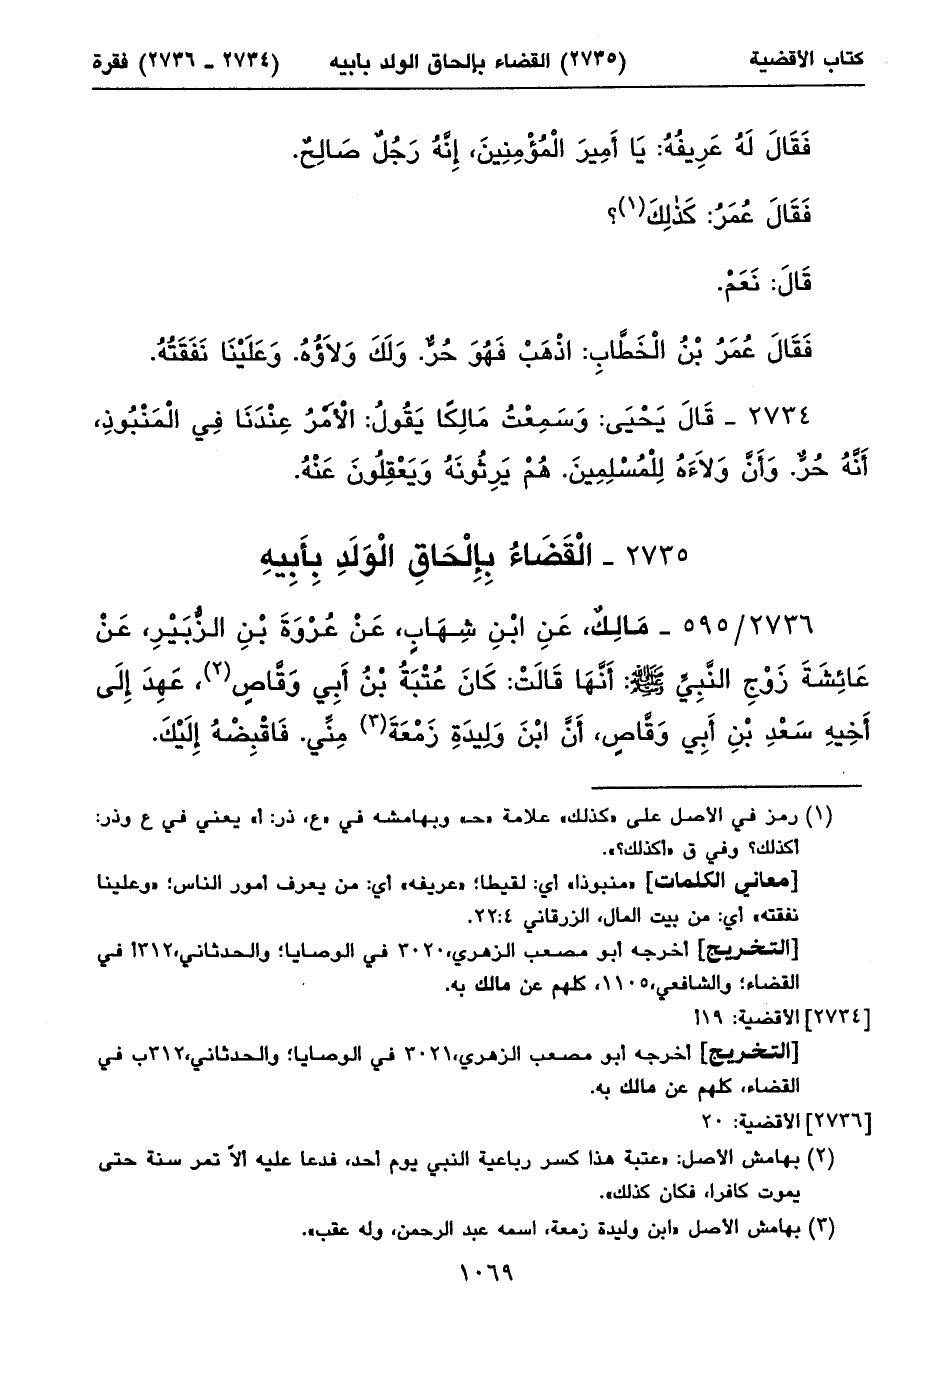 كتاب الأقضية (٢٧٣٥) القضاء بإلحاق الولد بأبيه (٢٧٣٤ ـ ٢٧٣٦) فقرة
فَقَالَ لَهُ عَرِيفُهُ: يَا أَمِيرَ الْمُؤْمِنِينَ، إِنَّهُ رَجُلٌ صَالِحٌ.
فَقَالَ عُمَرُ: كَذٰلِكَ(١)؟
قَالَ: نَعَمْ.
فَقَالَ عُمَرُ بْنُ الْخَطَّابِ: اذْهَبْ فَهُوَ حُرٌّ. وَلَكَ وَلاَؤُهُ. وَعَلَيْنَا نَفَقَتُهُ.
٢٧٣٤ ـ قَالَ يَحْيَى: وَسَمِعْتُ مَالِكًا يَقُولُ: الْأَمْرُ عِنْدَنَا فِي الْمَنْبُوذِ،
أَنَّهُ حُرٌّ. وَأَنَّ وَلاَءَهُ لِلْمُسْلِمِينَ. هُمْ يَرِثُونَهُ وَيَعْقِلُونَ عَنْهُ.
٢٧٣٥ ـ الْقَضَاءُ بِإِلْحَاقِ الْوَلَدِ بِأَبِيهِ
٥٩٥/٢٧٣٦ ـ مَالِكٌ، عَنِ ابْنِ شِهَابٍ، عَنْ عُرْوَةَ بْنِ الزُّبَيْرِ، عَنْ
عَائِشَةَ زَوْجِ النَّبِيِّ ﷺ: أَنَّهَا قَالَتْ: كَانَ عُتْبَةُ بْنُ أَبِي وَقَّاصٍ(٢)، عَهِدَ إِلَى
أَخِيهِ سَعْدِ بْنِ أَبِي وَقَّاصٍ، أَنَّ ابْنَ وَلِيدَةِ زَمْعَةَ(٣) مِنِّي. فَاقْبِضْهُ إِلَيْكَ.
(١) رمز في الأصل على «كذلك» علامة «حـ» وبهامشه في «ع، ذر: أ» يعني في ع وذر:
أكذلك؟ وفي ق «أكذلك؟».
[معاني الكلمات] «منبوذا» أي: لقيطا؛ «عريفه» أي: من يعرف أمور الناس؛ «وعلينا
نفقته» أي: من بيت المال، الزرقاني ٢٢:٤.
[التخريج] أخرجه أبو مصعب الزهري،٣٠٢٠ في الوصايا؛ والحدثاني،٣١٢أ في
القضاء؛ والشافعي،١١٠٥، كلهم عن مالك به.
[٢٧٣٤] الأقضية: ١٩أ
[التخريج] أخرجه أبو مصعب الزهري،٣٠٢١ في الوصايا؛ والحدثاني،٣١٢ب في
القضاء، كلهم عن مالك به.
[٢٧٣٦] الأقضية: ٢٠
(٢) بهامش الأصل: «عتبة هذا كسر رباعية النبي يوم أحد، فدعا عليه ألاّ تمر سنة حتى
يموت كافرا، فكان كذلك».
(٣) بهامش الأصل «ابن وليدة زمعة، اسمه عبد الرحمن، وله عقب».
١٠٦٩